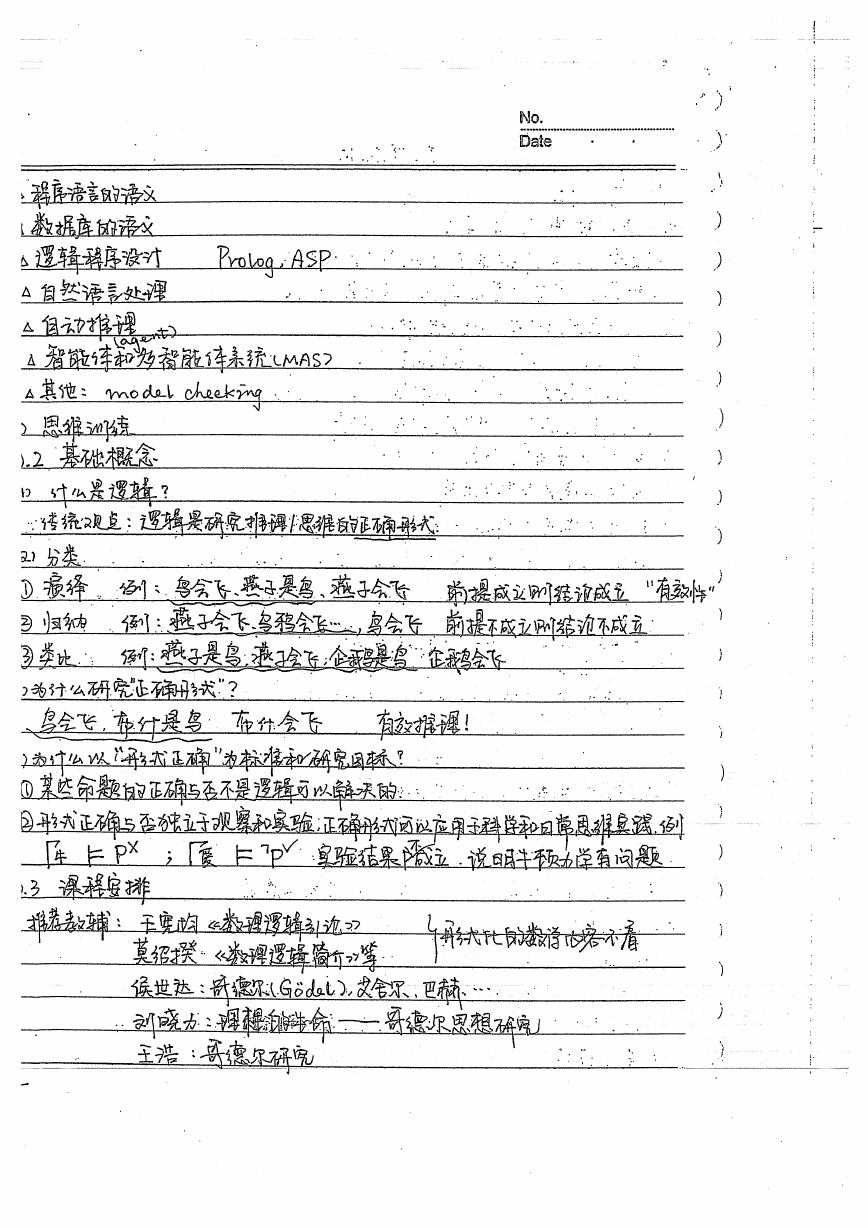 No.
Date
程序语言的语义
数据库的语义
△ 逻辑程序设计 Prolog, ASP
△ 自然语言处理
△ 自动推理
(agent)
△ 智能体和多智能体系统(MAS)
△ 其他: model checking
) 思维训练
.2 基础概念
1) 什么是逻辑?
传统观点: 逻辑是研究推理/思维的正确形式.
2) 分类
① 演绎 例: 鸟会飞、燕子是鸟、燕子会飞 前提成立则结论成立 "有效性"
② 归纳 例: 燕子会飞、乌鸦会飞…, 鸟会飞 前提不成立则结论不成立
③ 类比 例: 燕子是鸟, 燕子会飞, 企鹅是鸟 企鹅会飞
) 为什么研究"正确形式"?
鸟会飞, 布什是鸟 布什会飞 有效推理!
) 为什么以"形式正确"为标准和研究目标?
① 某些命题的正确与否不是逻辑可以解决的.
② 形式正确与否独立于观察和实验; 正确形式可以应用于科学和日常思维实践. 例
Γ牛 ⊨ P× ; Γ爱 ⊨ ¬P✓ 实验结果P不成立. 说明牛顿力学有问题
.3 课程安排
推荐教辅: 王宪均《数理逻辑引论》
形式化的数停内容不看
莫绍揆《数理逻辑简介》等
侯世达: 哥德尔(Gödel), 艾舍尔, 巴赫…
刘晓力: 理性的生命 —— 哥德尔思想研究
王浩: 哥德尔研究